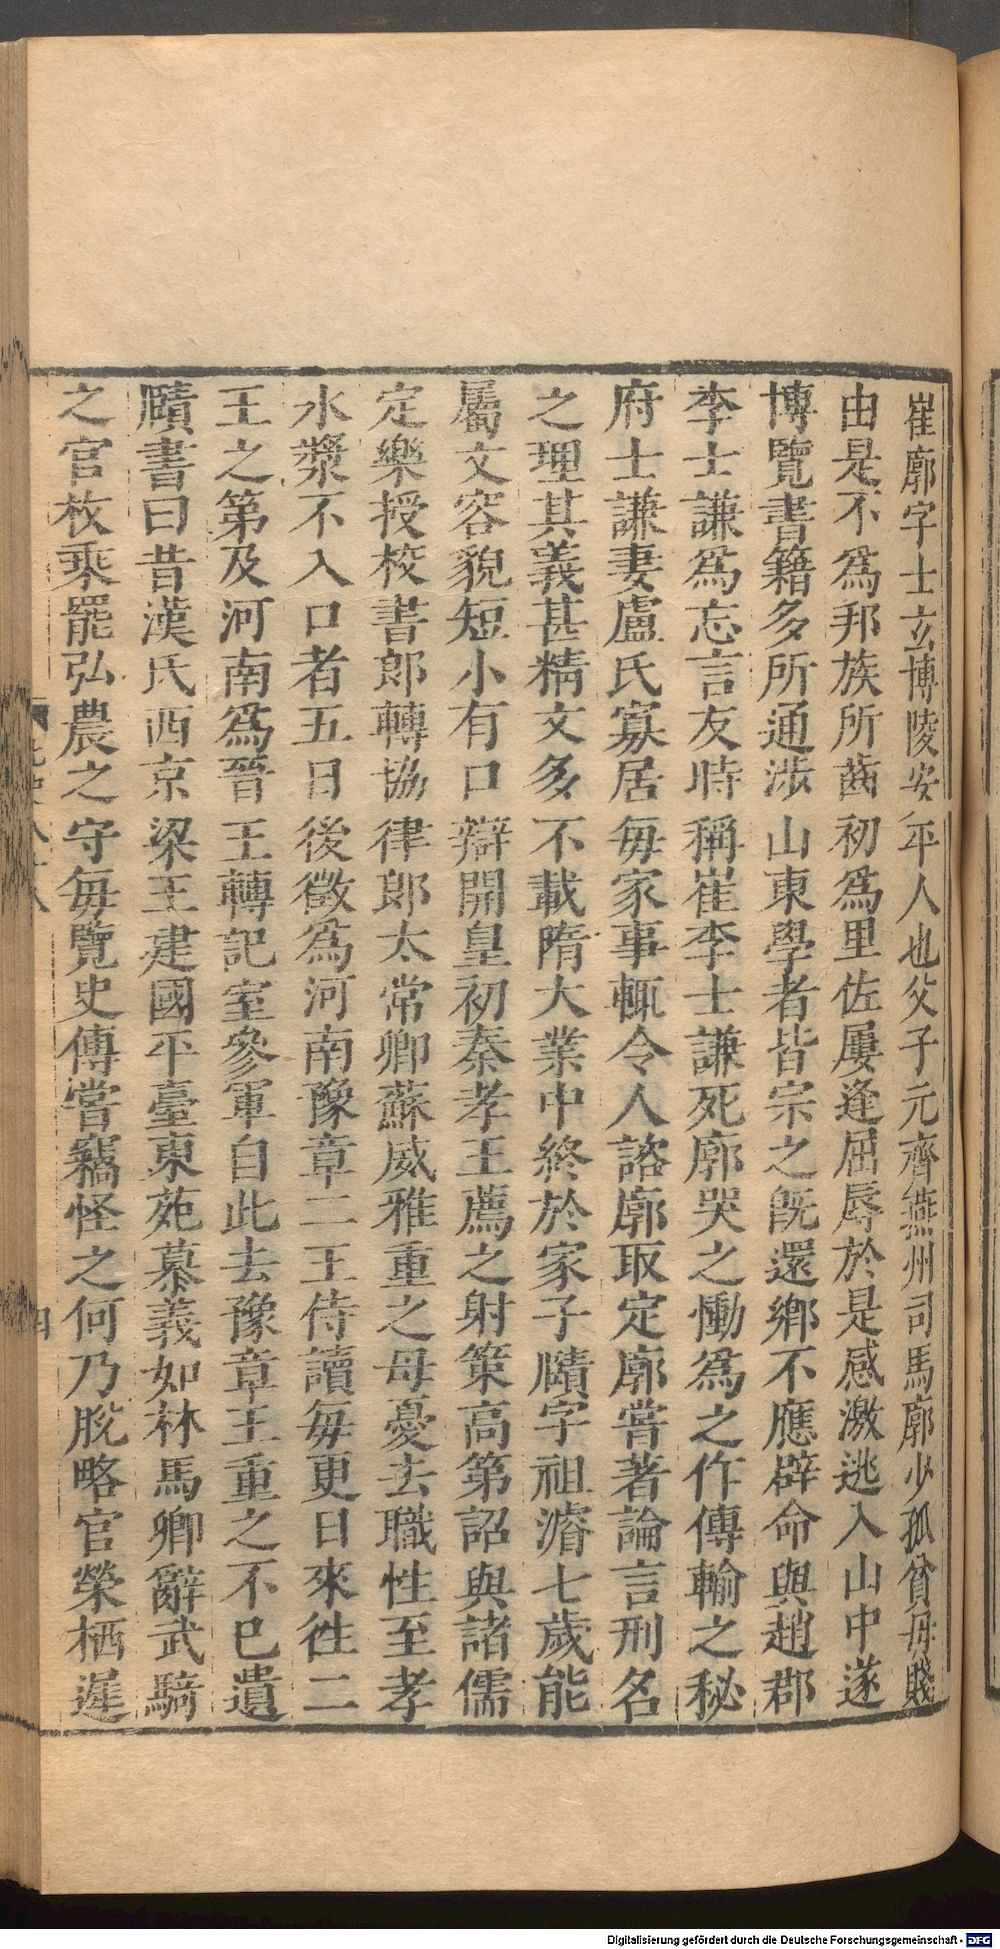 崔廓字士玄博陵安平人也父子元齊燕州司馬廓少孤貧母賤
由是不爲邦族所齒初爲里佐屢逢屈辱於是感激逃入山中遂
博覽書籍多所通涉山東學者皆宗之旣還鄉不應辟命與趙郡
李士謙爲忘言友時稱崔李士謙死廓哭之慟爲之作傳輸之秘
府士謙妻盧氏寡居每家事輒令人諮廓取定廓嘗著論言刑名
之理其義甚精文多不載隋大業中終於家子賾字祖濬七歲能
屬文容貌短小有口辯開皇初秦孝王薦之射策高第詔與諸儒
定樂授校書郎轉協律郎太常卿蘇威雅重之母憂去職性至孝
水漿不入口者五日後徵爲河南豫章二王侍讀每更日來往二
王之第及河南爲晉王轉記室參軍自此去豫章王重之不已遺
賾書曰昔漢氏西京梁王建國平臺東苑慕義如林馬卿辭武騎
之官枚乘罷弘農之守每覽史傳嘗竊怪之何乃脫略官榮栖遲
四
Digitalisierung gefördert durch die Deutsche Forschungsgemeinschaft - DFG